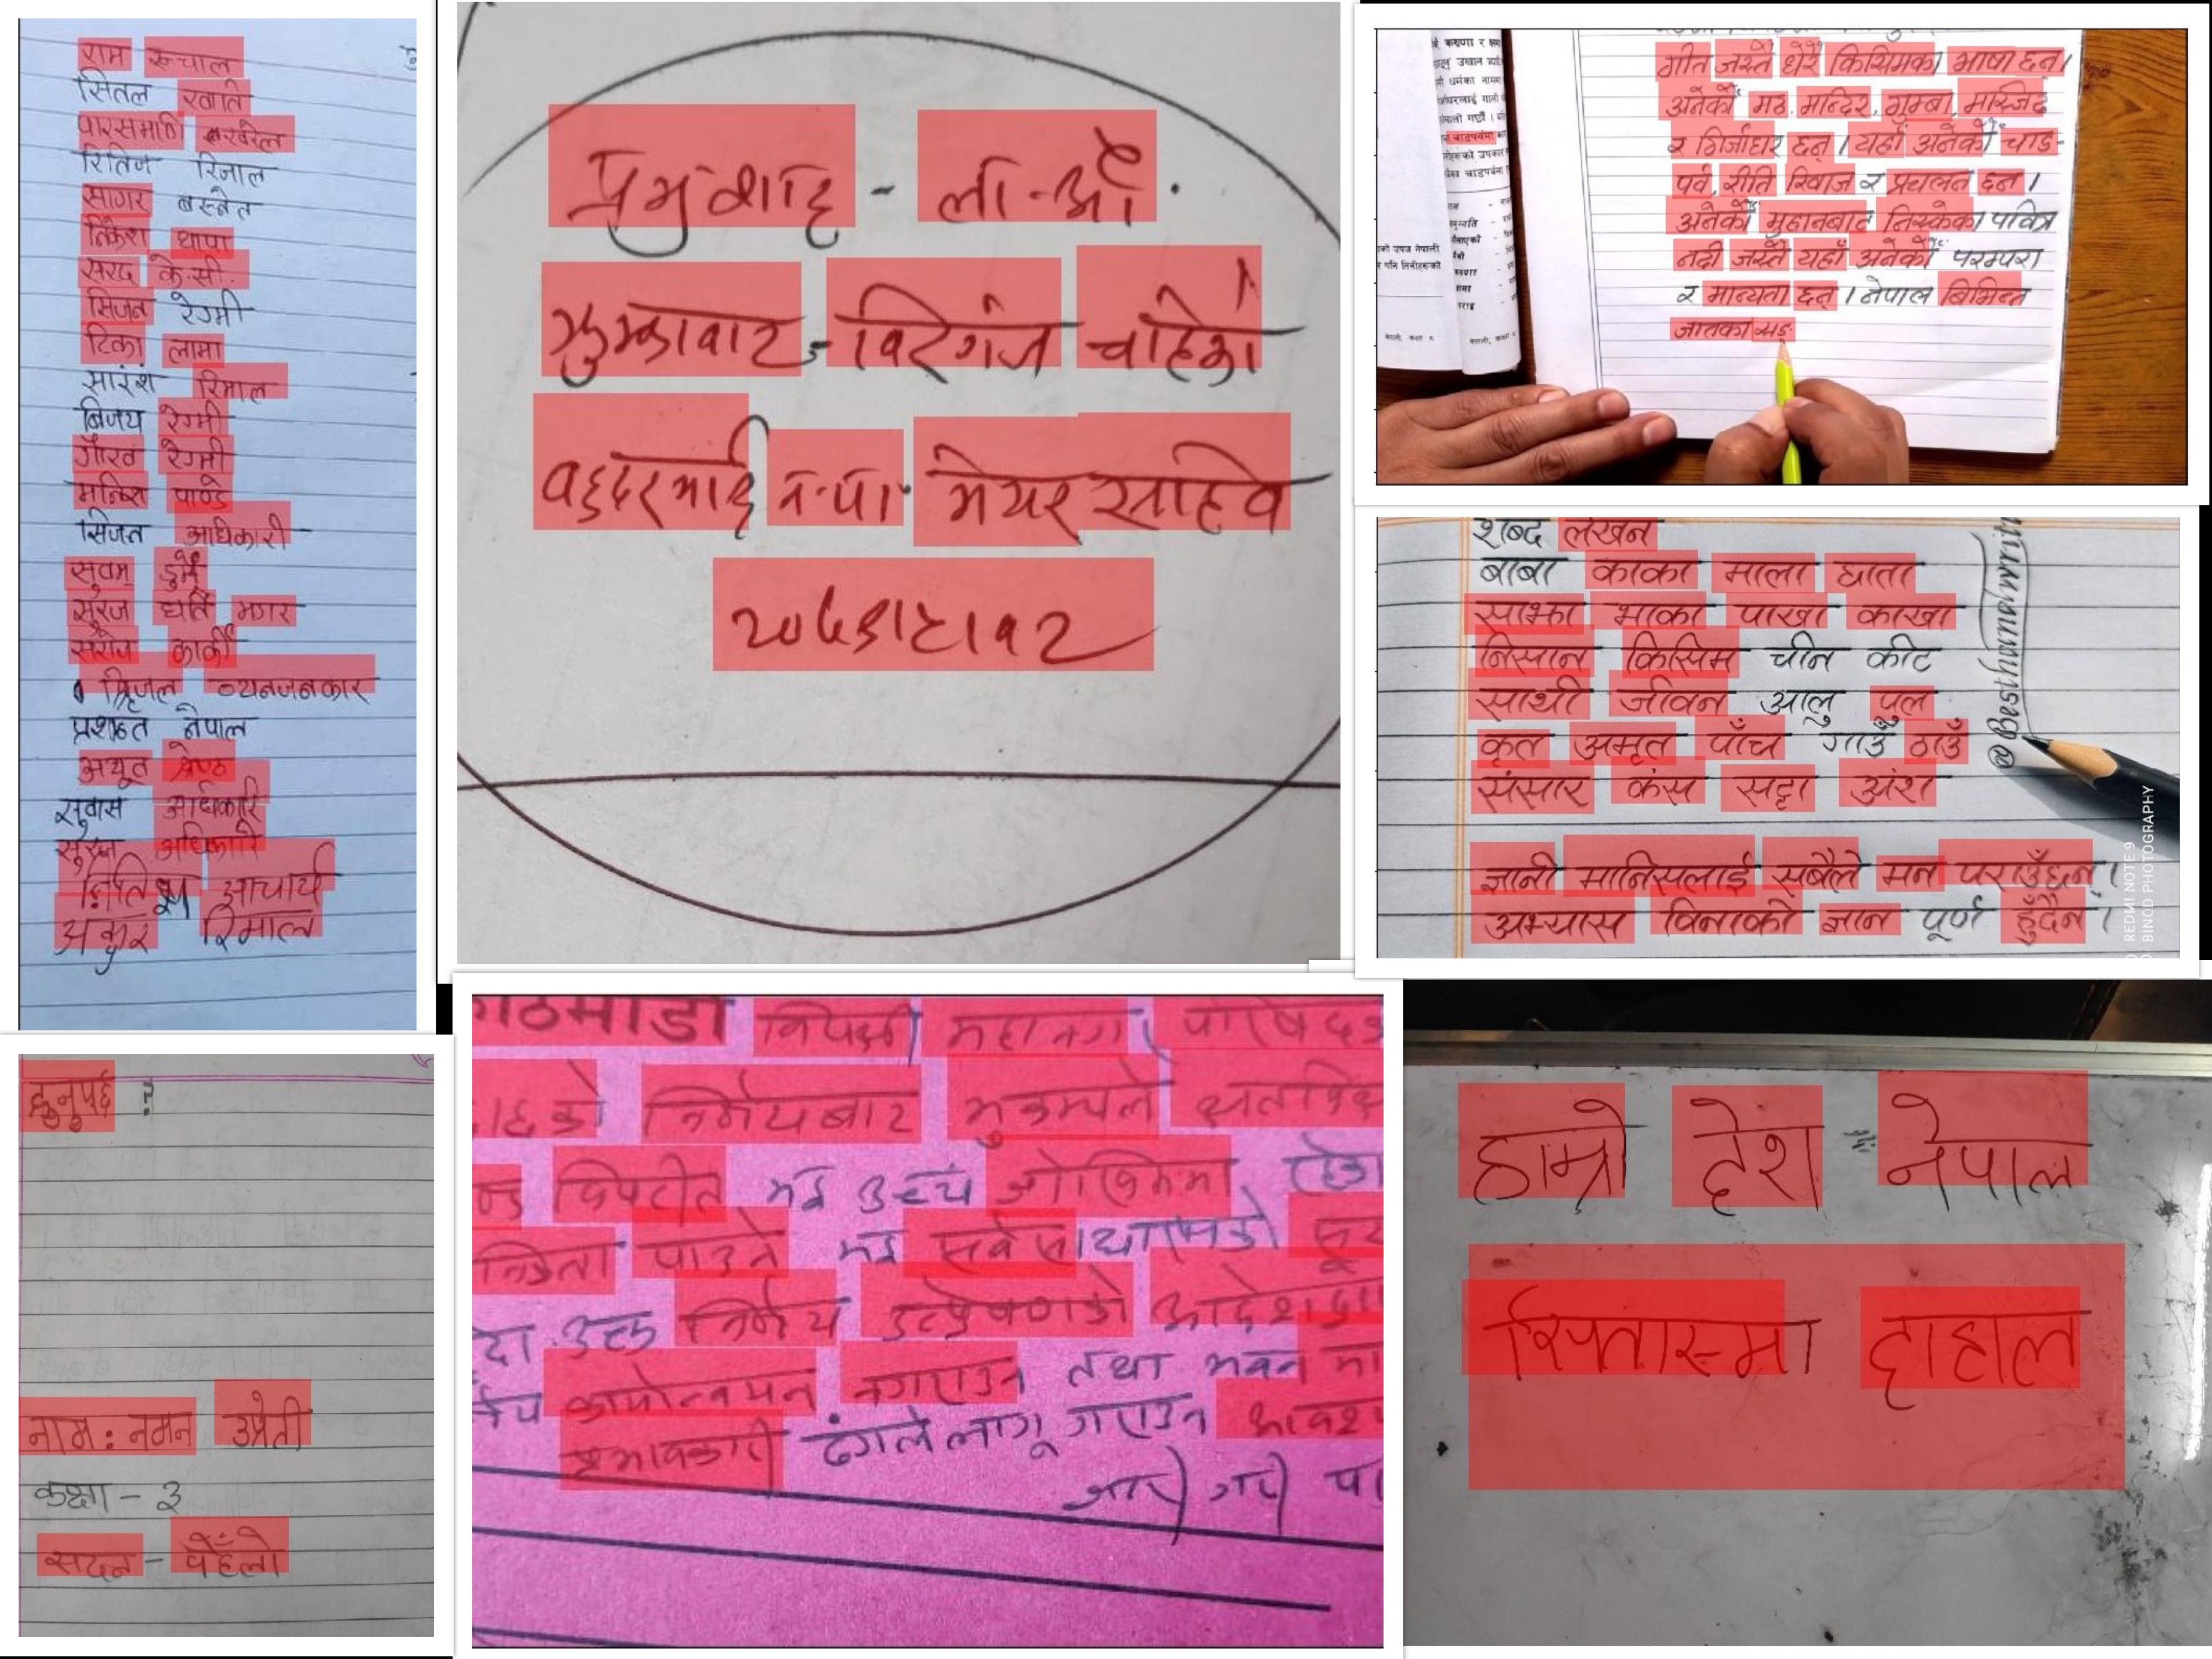 राम रुचाल
सितल खाति
पारसमणि खरेल
रितिज रिजाल
सागर बस्नेत
निकेश थापा
सरद के.सी.
सिजन रेग्मी
टिका लामा
सारंश रिमाल
बिजय रेग्मी
गौरव रेग्मी
मनिस पाण्डे
सिजन अधिकारी
सुवम
सुरज घर्ति मगर
सरोज कार्की
व्यनजनकार
प्रशान्त नेपाल
अच्यूत श्रेष्ठ
सुवास अधिकारि
सुरज अधिकारी
आचार्य
अंकुर रिमाल
- ला.औ.
झुम्काबाट - विरगंज
न.पा. मेयर साहेव
गीत जस्तै धेरै किसिमका भाषा छन्।
अनेकौं मठ, मन्दिर, गुम्बा, मस्जिद
र गिर्जाघर छन् । यहाँ अनेकौं चाड-
पर्व, रीति रिवाज र प्रचलन छन् ।
अनेकौं मुहानबाट निस्केका पवित्र
नदी जस्तै यहाँ अनेकौं परम्परा
र मान्यता छन् । नेपाल बिभिन्न
जातका सङ
शब्द लेखन
बाबा काका माला छाता
साझा भाका पाखा काखा
निसान किसिम चीन कीट
साथी जीवन आलु पुल
कृत अमृत पाँच गाउँ ठाउँ
संसार कंस सट्टा अंश
ज्ञानी मानिसलाई सबैले मन पराउँछन् ।
अभ्यास विनाको ज्ञान पूर्ण हुँदैन ।
@Besthandwrit
REDMI NOTE 9
BINOD PHOTOGRAPHY
हुनुपर्छ ?
नाम : नमन उप्रेती
कक्षा - ३
सदन - पहेँलो
काठमाडौ महानगर
निर्णयबाट भुकम्पले
विपरीत भई जोखिममा
पाउने भई सर्वसाधारणको
निर्णय उत्प्रेषणको आदेशद्वारा
कार्यान्वयन नगराउन तथा भवन
प्रभावकारी ढंगले लागू गराउन
हाम्रो देश = नेपाल
दाहाल